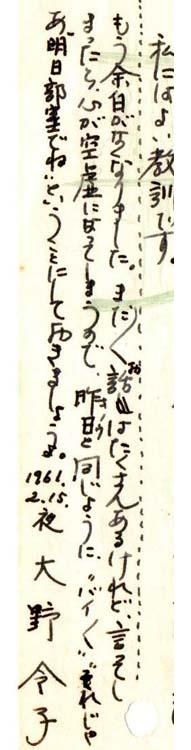 私にはよい教訓です。
もう余白がなくなりました。まだ〱お話はたくさんあるけれど、言ってし
まったら、心が空虚になってしまうので、昨日と同じように、"バイ〱""それじゃ
あ、明日部室でね"ということにしておきましょう。
1961.
2.15.
夜 大野 令子